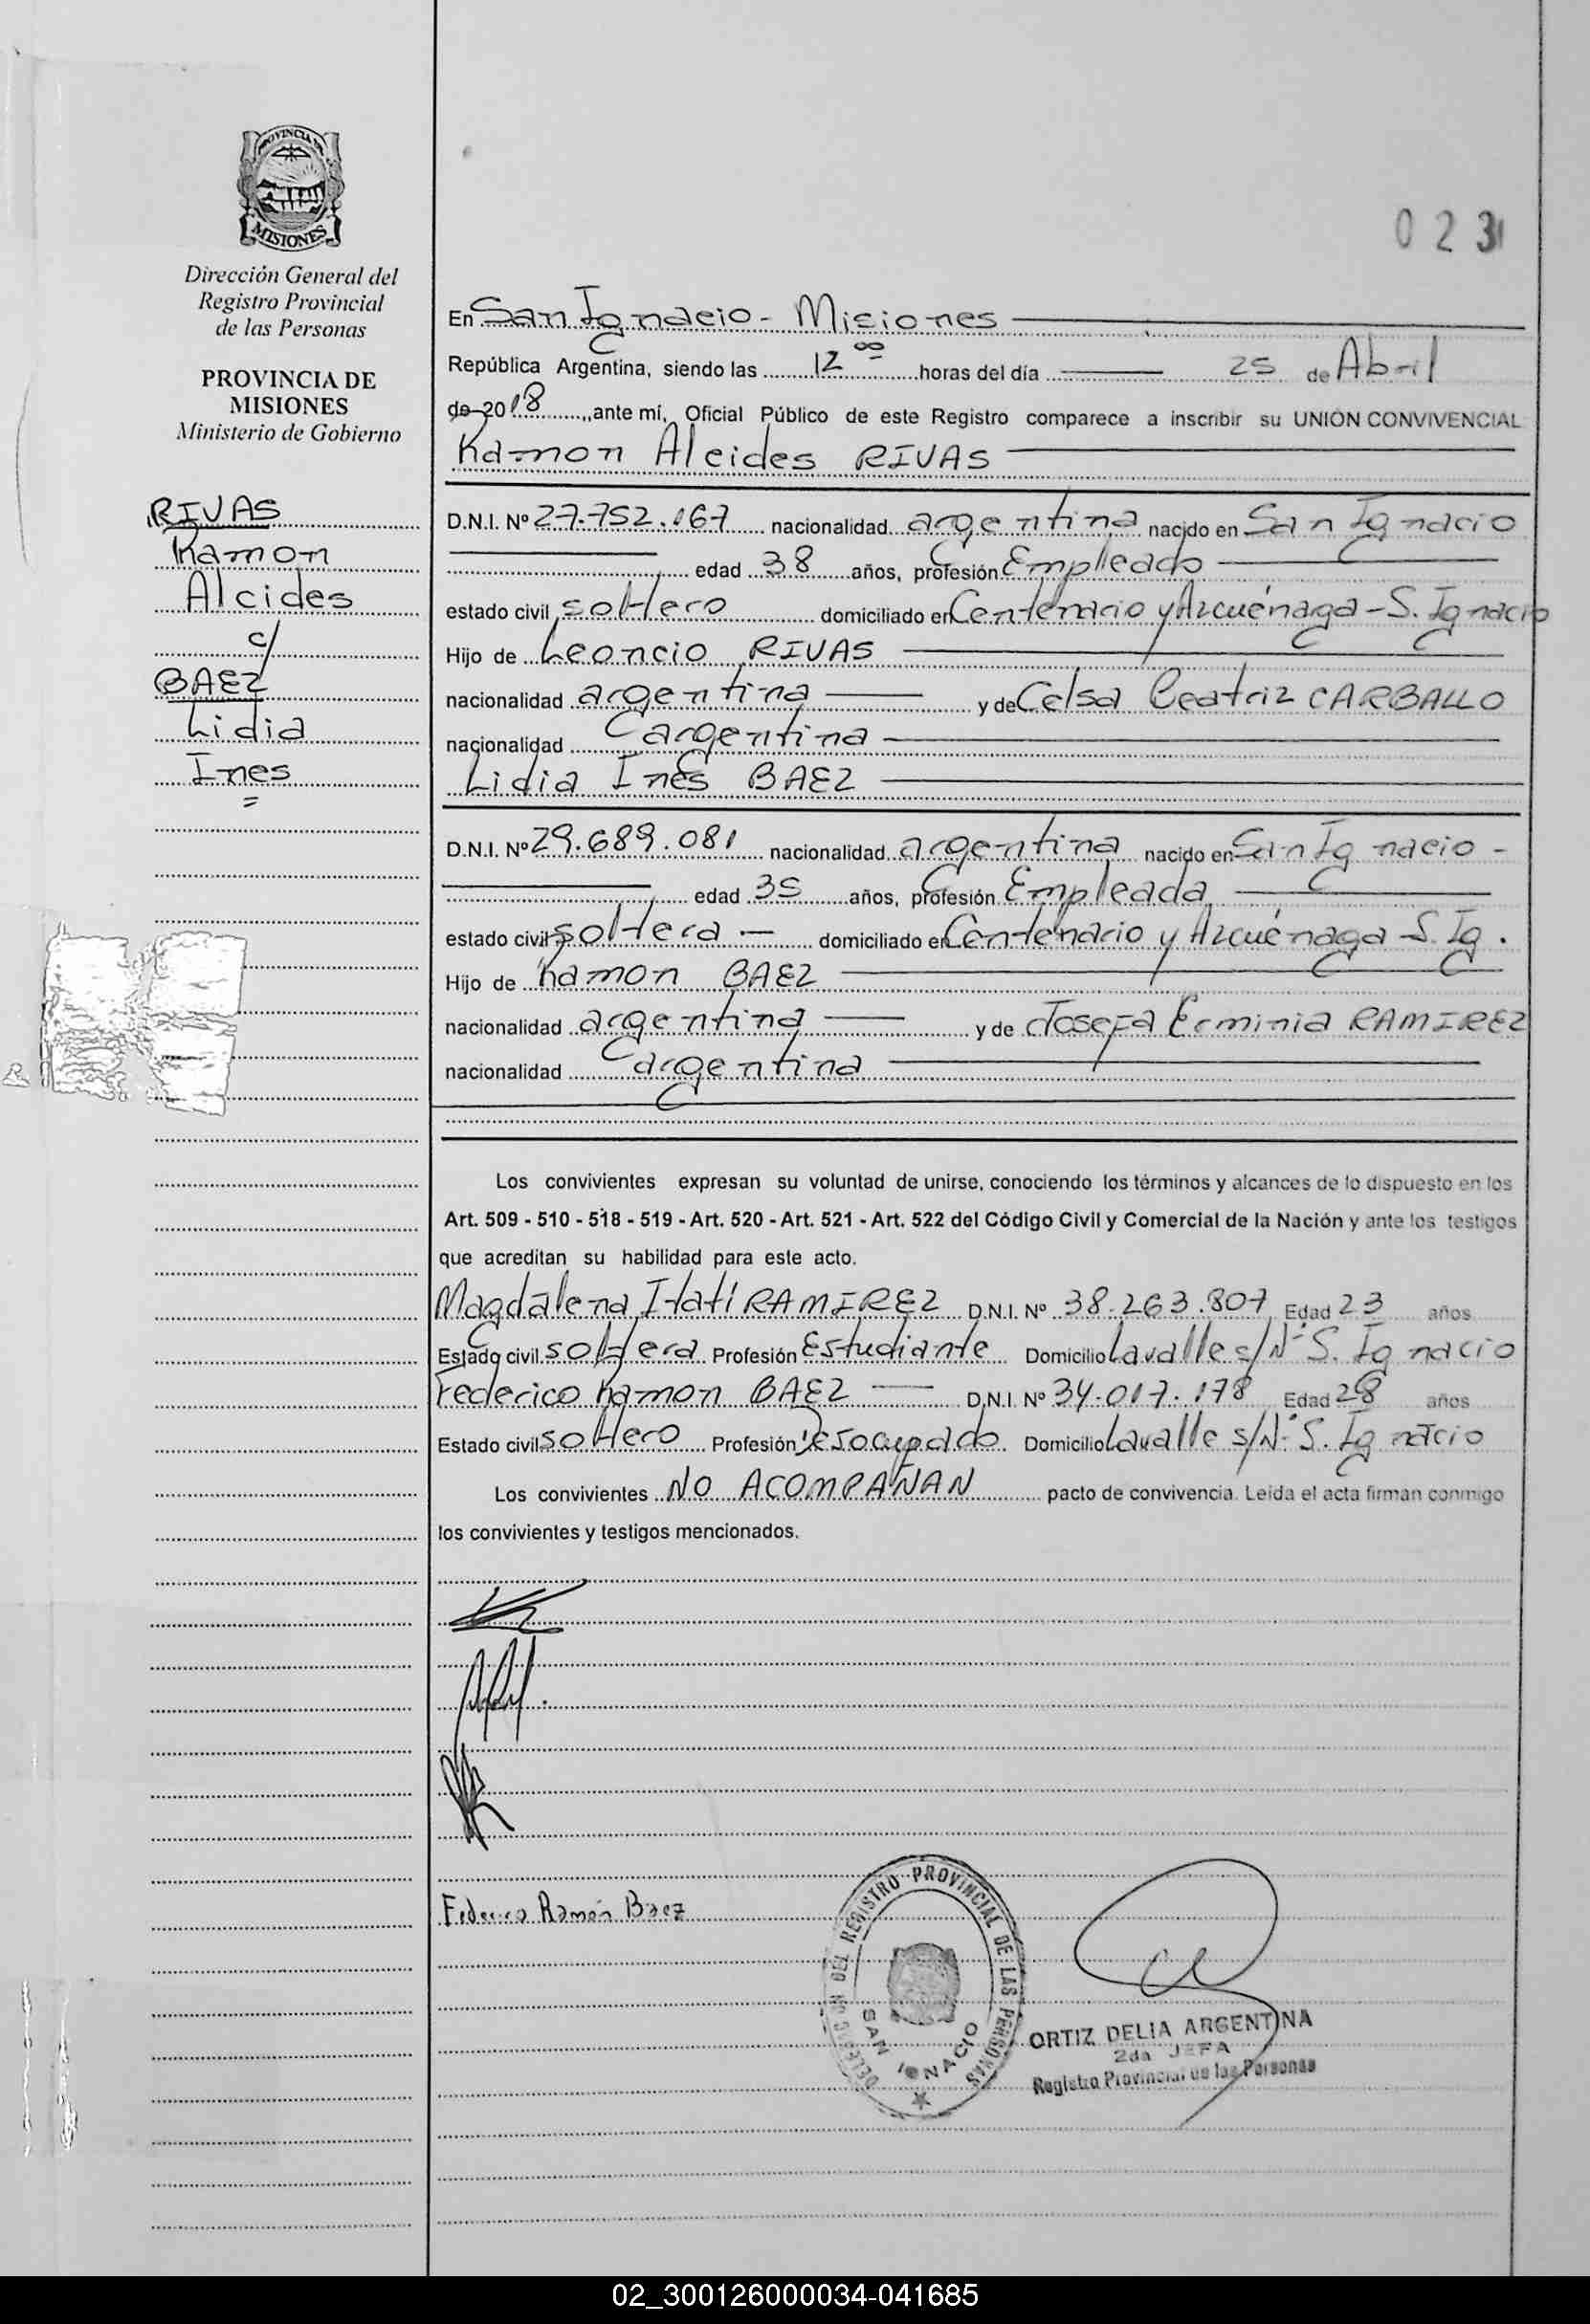 PROVINCIA DE
MISIONES
Dirección General del
Registro Provincial
de las Personas
PROVINCIA DE
MISIONES
Ministerio de Gobierno
RIVAS
Ramon
Alcides
c/
BAEZ
Lidia
Ines
023
En San Ignacio - Misiones
República Argentina, siendo las 12 00 horas del día 25 de Abril
de 2018, ante mí, Oficial Público de este Registro comparece a inscribir su UNIÓN CONVIVENCIAL
Ramon Alcides RIVAS
D.N.I. Nº 27.752.167 nacionalidad argentina nacido en San Ignacio
edad 38 años, profesión Empleado
estado civil soltero domiciliado en Centenario y Azcuénaga - S. Ignacio
Hijo de Leoncio RIVAS
nacionalidad argentina y de Celsa Beatriz CARBALLO
nacionalidad argentina
Lidia Inés BAEZ
D.N.I. Nº 29.689.081 nacionalidad argentina nacido en San Ignacio -
edad 35 años, profesión Empleada
estado civil soltera - domiciliado en Centenario y Azcuénaga - S. Ig.
Hijo de Ramon BAEZ
nacionalidad argentina y de Josefa Erminia RAMIREZ
nacionalidad argentina
Los convivientes expresan su voluntad de unirse, conociendo los términos y alcances de lo dispuesto en los
Art. 509 - 510 - 518 - 519 - Art. 520 - Art. 521 - Art. 522 del Código Civil y Comercial de la Nación y ante los testigos
que acreditan su habilidad para este acto.
Magdalena Itatí RAMIREZ D.N.I. Nº 38.263.807 Edad 23 años
Estado civil soltera Profesión Estudiante Domicilio Lavalle s/Nº S. Ignacio
Federico Ramon BAEZ D.N.I. Nº 34.017.178 Edad 28 años
Estado civil soltero Profesión Desocupado Domicilio Lavalle s/Nº S. Ignacio
Los convivientes NO ACOMPAÑAN pacto de convivencia. Leída el acta firman conmigo
los convivientes y testigos mencionados.
Federico Ramón Baez
DEL REGISTRO PROVINCIAL DE LAS PERSONAS
SAN IGNACIO
ORTIZ DELIA ARGENTINA
2da JEFA
Registro Provincial de las Personas
02_300126000034-041685